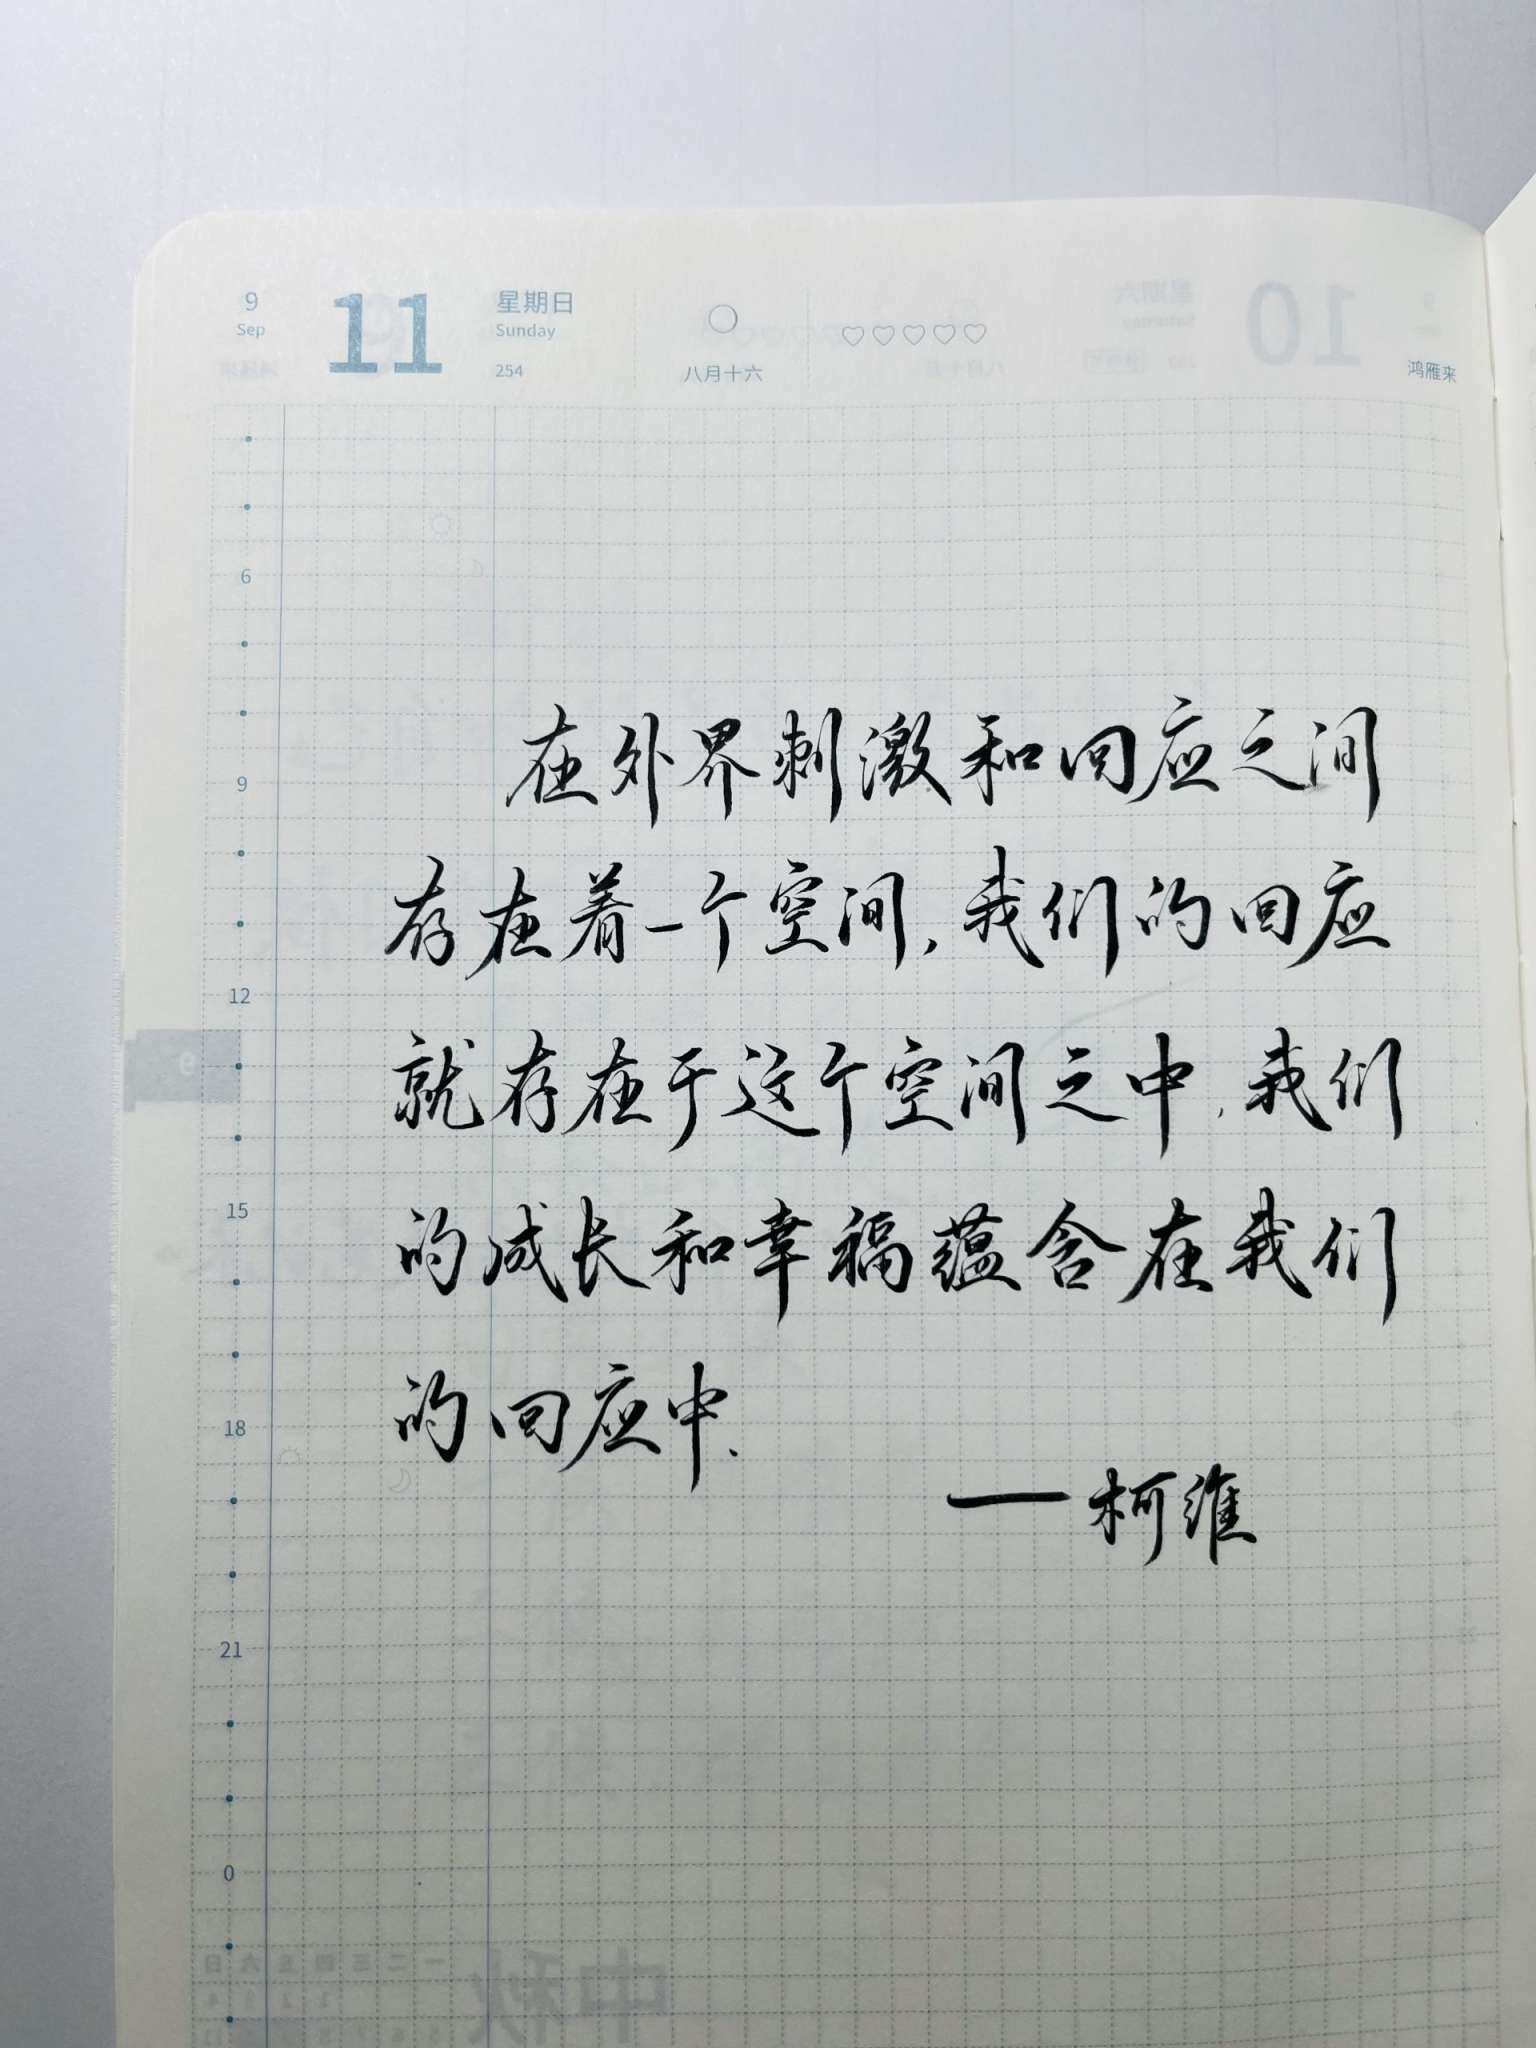 9
Sep
11
星期日
Sunday
254
八月十六
鸿雁来
10
6
9
12
15
18
21
0
在外界刺激和回应之间
存在着一个空间,我们的回应
就存在于这个空间之中,我们
的成长和幸福蕴含在我们
的回应中.
——柯维
9
中秋
一二三四五六日